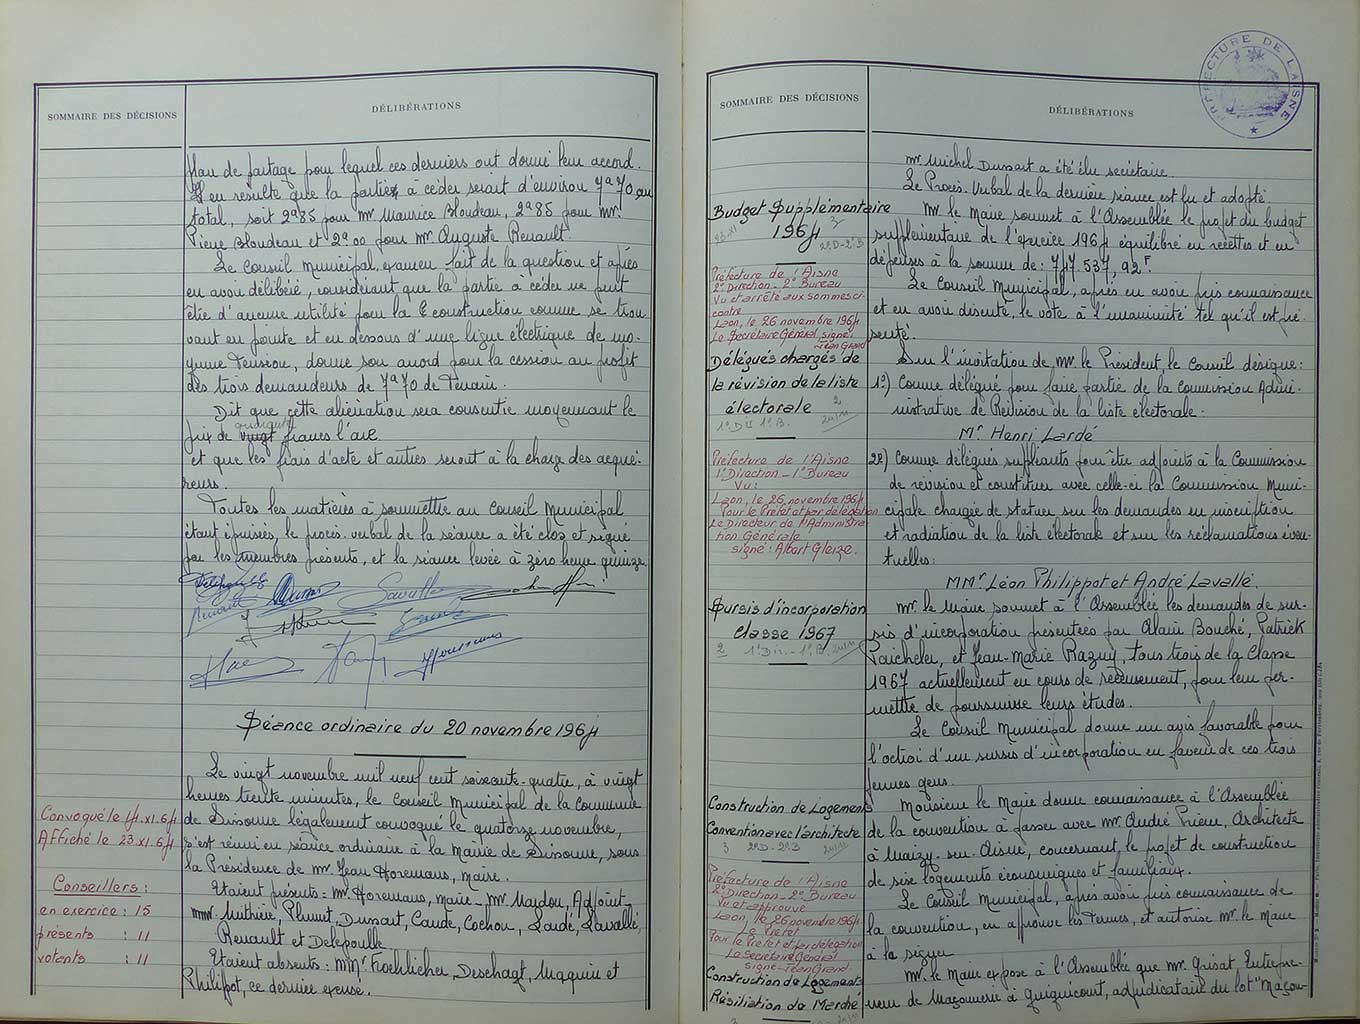 SOMMAIRE DES DÉCISIONS
DÉLIBÉRATIONS
plan de partage pour lequel ces derniers ont donné leur accord.
Il en résulte que la partie à céder serait d'environ 7a70 au
total, soit 2a85 pour Mr Maurice Bloudeau, 2a85 pour Mr
Pierre Bloudeau et 2a00 pour Mr Auguste Renault.
Le Conseil Municipal, examen fait de la question et après
en avoir délibéré, considérant que la partie à céder ne peut
être d'aucune utilité pour la construction comme se trou-
vant en pointe et en dessous d'une ligne électrique de mo-
yenne tension, donne son accord pour la cession au profit
des trois demandeurs de 7a70 de terrain.
Dit que cette aliénation sera consentie moyennant le
quinze
prix de vingt francs l'are
et que les frais d'acte et autres seront à la charge des acqué-
reurs.
Toutes les matières à soumettre au Conseil Municipal
étant épuisées, le procès-verbal de la séance a été clos et signé
par les membres présents, et la séance levée à zéro heure quinze.
Séance ordinaire du 20 novembre 1964
Le vingt novembre mil neuf cent soixante-quatre, à vingt
heures trente minutes, le Conseil Municipal de la Commune
Convoqué le 14.XI.64
de Sissonne légalement convoqué le quatorze novembre,
Affiché le 23.XI.64
s'est réuni en séance ordinaire à la Mairie de Sissonne, sous
la Présidence de Mr. Jean Horemans, Maire.
Conseillers :
Etaient présents : Mr Horemans, Maire - Mr Mardou, Adjoint -
en exercice : 15
MMrs Mithière, Plumet, Dussart, Caude, Cochon, Lardé, Lavallé,
présents : 11
Renault et Delepoulle.
votants : 11
Etaient absents : MMrs Kochlicher, Deschagt, Maquin et
Philippot, ce dernier excusé.
PRÉFECTURE DE L'AISNE
SOMMAIRE DES DÉCISIONS
DÉLIBÉRATIONS
Mr Michel Dussart a été élu secrétaire.
Le Procès-Verbal de la dernière séance est lu et adopté.
Budget Supplémentaire
1964
23.XI
2°D-2°B
Mr. le Maire soumet à l'Assemblée le projet du budget
supplémentaire de l'exercice 1964 équilibré en recettes et en
dépenses à la somme de : 747.537,92F.
Préfecture de l'Aisne
2° Direction - 2° Bureau
Vu et arrêté aux sommes ci-
contre
Laon, le 26 novembre 1964
Le Secrétaire Général, signé :
Jean Grand
Le Conseil Municipal, après en avoir pris connaissance
et en avoir discuté, le vote à l'unanimité tel qu'il est pré-
senté.
Délégués chargés de
la révision de la liste
électorale
Sur l'invitation de Mr. le Président, le Conseil désigne :
1°) Comme délégué pour faire partie de la Commission Admi-
nistrative de Révision de la liste électorale :
Mr. Henri Lardé
Préfecture de l'Aisne
1° Direction - 1° Bureau
Vu :
Laon, le 26 novembre 1964
Pour le Préfet et par délégation
Le Directeur de l'Administra-
tion Générale
signé : Albert Gleize.
2°) Comme délégués suppléants pour être adjoints à la Commission
de révision et constituer avec celle-ci la Commission Muni-
cipale chargée de statuer sur les demandes en inscription
et radiation de la liste électorale et sur les réclamations éven-
tuelles :
MMrs Léon Philippot et André Lavallé.
Sursis d'incorporation
Classe 1967
2 1°Dir. - 1°B.
Mr. le Maire soumet à l'Assemblée les demandes de sur-
sis d'incorporation présentées par Alain Bouché, Patrick
Paicheler, et Jean-Marie Razuy, tous trois de la Classe
1967 actuellement en cours de recensement, pour leur per-
mettre de poursuivre leurs études.
Le Conseil Municipal donne un avis favorable pour
l'octroi d'un sursis d'incorporation en faveur de ces trois
jeunes gens.
Construction de Logements
Convention avec l'architecte
3 2°D-2°B
Monsieur le Maire donne connaissance à l'Assemblée
de la convention à passer avec Mr. André Prieur, Architecte
à Maizy-sur-Aisne, concernant le projet de construction
de seize logements économiques et familiaux.
Préfecture de l'Aisne
2° Direction - 2° Bureau
Vu et approuvé
Laon, le 26 novembre 1964
Le Préfet
Pour le Préfet et par délégation
Le Secrétaire Général
Signé - Jean Grand.
Le Conseil Municipal, après avoir pris connaissance de
la convention, en approuve les termes, et autorise Mr. le Maire
à la signer.
Construction de Logements
Résiliation de Marché
Mr. le Maire expose à l'Assemblée que Mr. Quisat Entrepre-
neur de Maçonnerie à Guignicourt, adjudicataire du lot "Maçon-